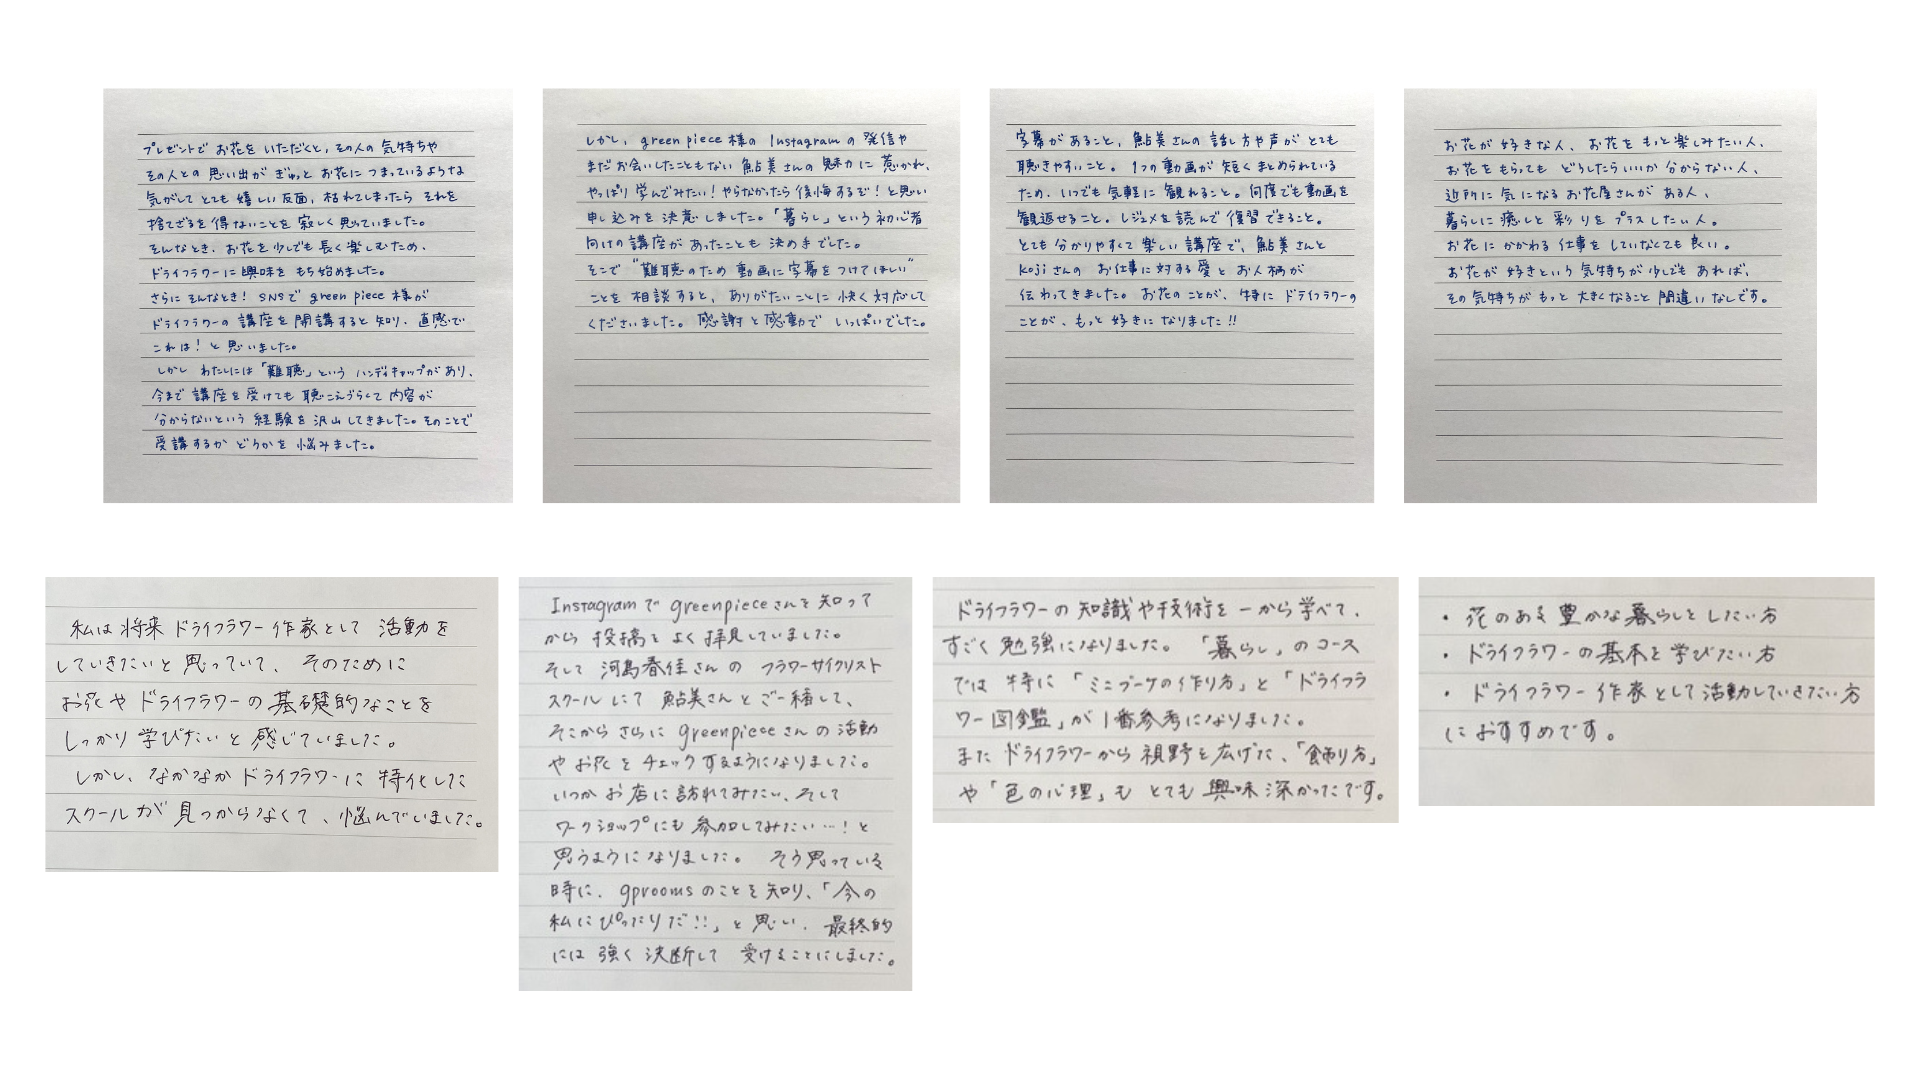 プレゼントで お花を いただくと、その人の 気持ちや
その人との 思い出が ぎゅっと お花に つまっているような
気がして とても 嬉しい 反面、枯れてしまったら それを
捨てざるを 得ないことを 寂しく 思っていました。
そんなとき、お花を 少しでも 長く 楽しむため、
ドライフラワーに 興味を もち始めました。
さらに そんなとき! SNSで green piece 様が
ドライフラワーの 講座を 開講すると 知り、直感で
これは! と 思いました。
しかし わたしには「難聴」という ハンディキャップがあり、
今まで 講座を 受けても 聴こえづらくて 内容が
分からないという 経験を 沢山 してきました。そのことで
受講するか どうかを 悩みました。
しかし、green piece 様の Instagramの 発信や
まだお会いしたこともない 鮎美さんの 魅力に 惹かれ、
やっぱり 学んでみたい! やらなかったら 後悔するぞ! と思い
申し込みを 決意しました。「暮らし」という 初心者
向けの 講座が あったことも 決め手でした。
そこで “難聴のため 動画に 字幕を つけてほしい”
ことを 相談すると、ありがたいことに 快く 対応して
くださいました。感謝と 感動で いっぱいでした。
字幕が あること、鮎美さんの 話し方や声が とても
聴きやすいこと。1つの 動画が 短く まとめられている
ため、いつでも 気軽に 観れること。何度でも 動画を
観返せること。レジュメを 読んで 復習できること。
とても 分かりやすくて 楽しい 講座で、鮎美さんと
Kojiさんの お仕事に対する 愛と お人柄が
伝わってきました。お花のことが、特に ドライフラワーの
ことが、もっと 好きに なりました!!
お花が 好きな人、お花を もっと 楽しみたい人、
お花を もらっても どうしたらいいか 分からない人、
近所に 気になる お花屋さんが ある人、
暮らしに 癒しと 彩りを プラスしたい人。
お花に かかわる 仕事を していなくても 良い。
お花が 好きという 気持ちが 少しでも あれば、
その 気持ちが もっと 大きくなること 間違いなしです。
私は 将来 ドライフラワー作家として 活動を
していきたいと 思っていて、そのために
お花や ドライフラワーの 基礎的なことを
しっかり 学びたいと 感じていました。
しかし、なかなか ドライフラワーに 特化した
スクールが 見つからなくて、悩んでいました。
Instagramで greenpieceさんを 知って
から 投稿を よく 拝見していました。
そして 河島春佳さんの フラワーサイクリスト
スクールにて 鮎美さんと ご一緒して、
そこから さらに greenpieceさんの 活動
や お花を チェックするようになりました。
いつか お店に 訪れてみたい、そして
ワークショップにも 参加してみたい…! と
思うように なりました。 そう思っている
時に、gproomsのことを 知り、「今の
私に ぴったりだ!!」と 思い、最終的
には 強く 決断して 受けることにしました。
ドライフラワーの 知識や技術を 一から 学べて、
すごく 勉強になりました。「暮らし」のコース
では 特に「ミニブーケの作り方」と「ドライフラ
ワー図鑑」が 1番参考になりました。
また ドライフラワーから 視野を 広げた、「飾り方」
や「色の心理」も とても 興味深かったです。
・ 花のある 豊かな 暮らしを したい方
・ ドライフラワーの 基本を 学びたい方
・ ドライフラワー作家として 活動していきたい方
に おすすめです。